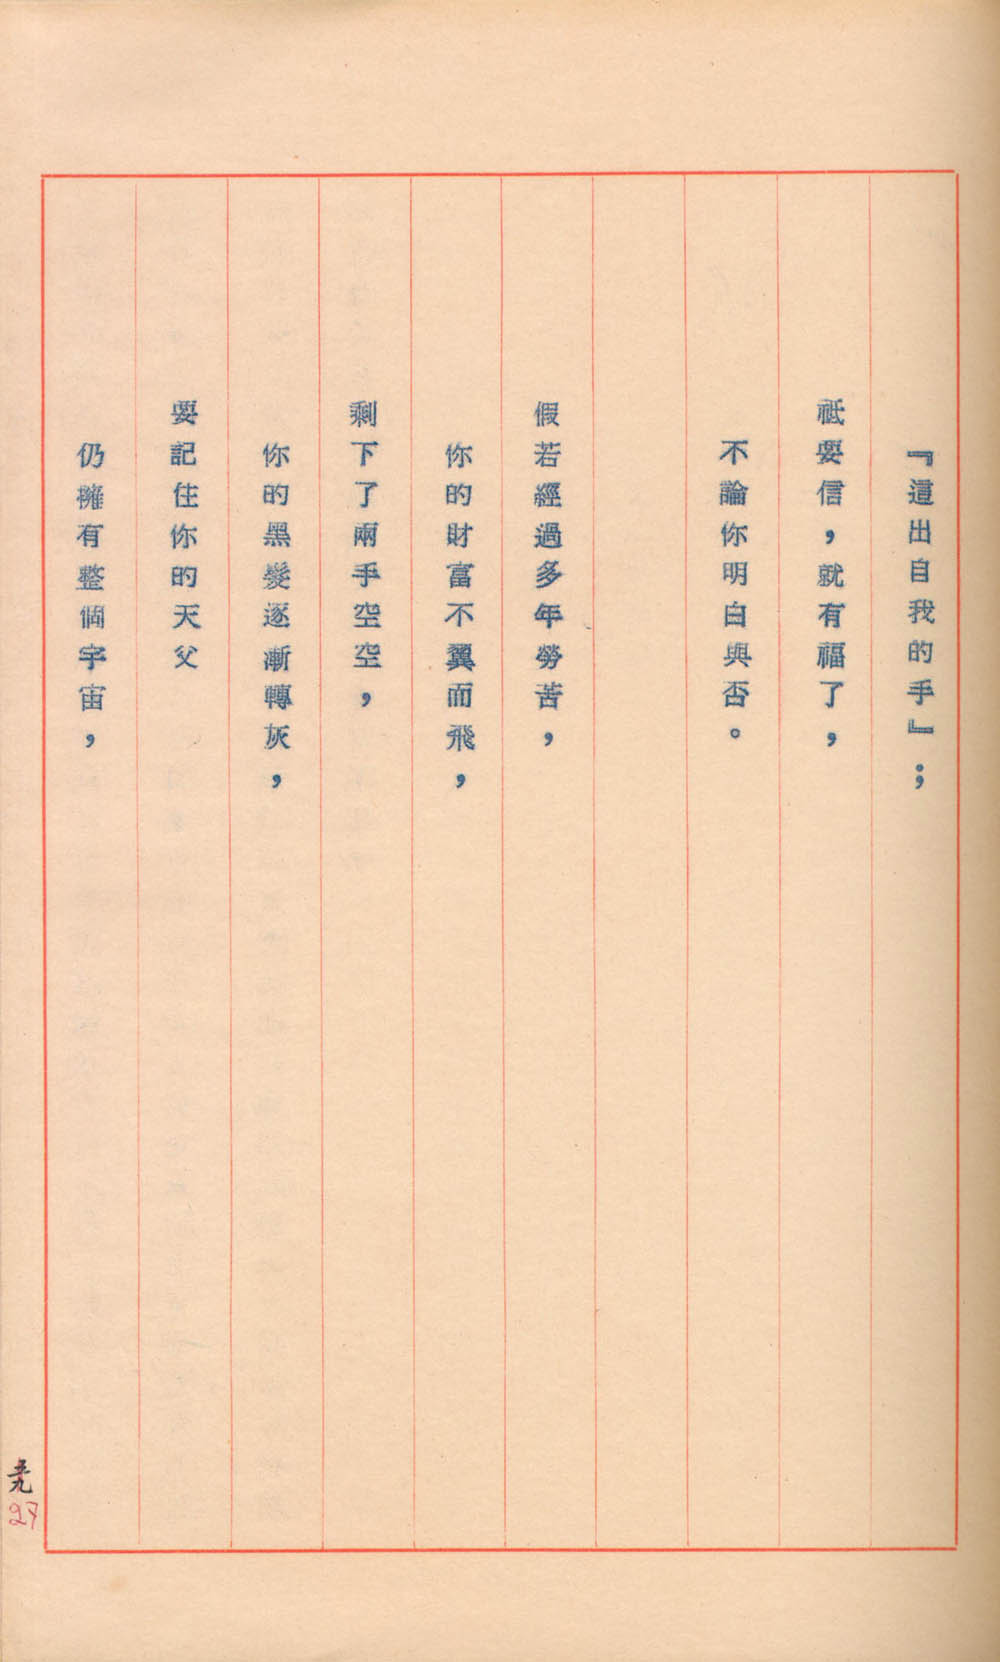 『這出自我的手』；
祗要信，就有福了，
不論你明白與否。
假若經過多年勞苦，
你的財富不翼而飛，
剩下了兩手空空，
你的黑髮逐漸轉灰，
要記住你的天父
仍擁有整個宇宙，
五九
27